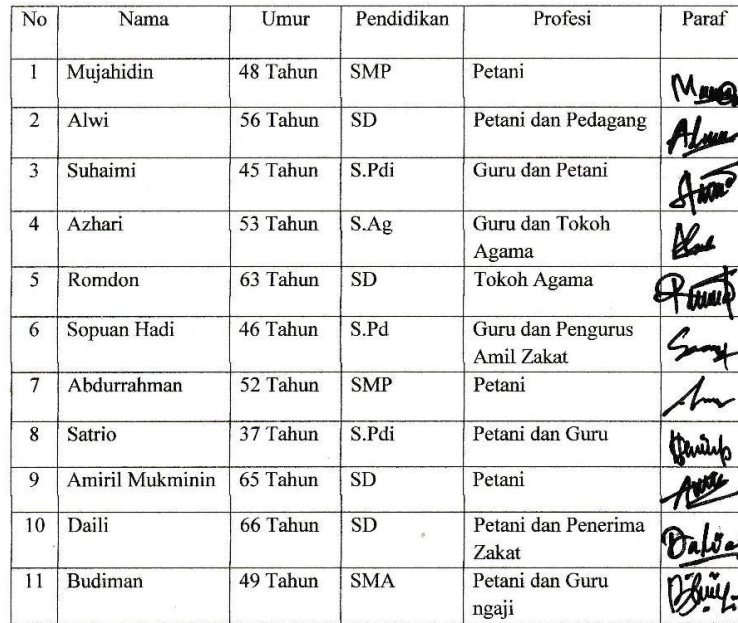 No Nama Umur Pendidikan Profesi Paraf
1 Mujahidin 48 Tahun SMP Petani
2 Alwi 56 Tahun SD Petani dan Pedagang
3 Suhaimi 45 Tahun S.Pdi Guru dan Petani
4 Azhari 53 Tahun S.Ag Guru dan Tokoh
Agama
5 Romdon 63 Tahun SD Tokoh Agama
6 Sopuan Hadi 46 Tahun S.Pd Guru dan Pengurus
Amil Zakat
7 Abdurrahman 52 Tahun SMP Petani
8 Satrio 37 Tahun S.Pdi Petani dan Guru
9 Amiril Mukminin 65 Tahun SD Petani
10 Daili 66 Tahun SD Petani dan Penerima
Zakat
11 Budiman 49 Tahun SMA Petani dan Guru
ngaji